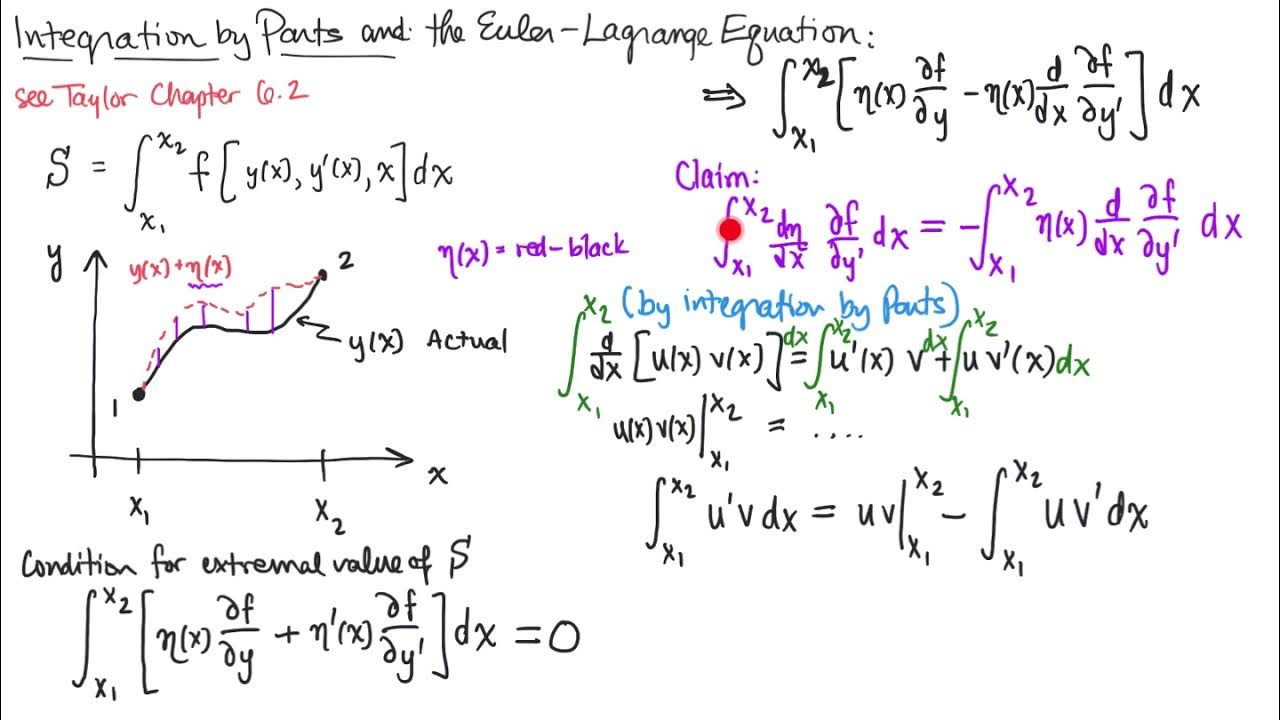 Integration by Parts and the Euler-Lagrange Equation:
see Taylor Chapter 6.2
S = ∫_{x₁}^{x₂} f[y(x), y'(x), x]dx
y
y(x)+η(x)
2
η(x) = red-black
y(x) Actual
1
x
x₁
x₂
Condition for extremal value of S
∫_{x₁}^{x₂} [η(x) ∂f/∂y + η'(x) ∂f/∂y'] dx = 0
⇒ ∫_{x₁}^{x₂} [η(x) ∂f/∂y - η(x) d/dx ∂f/∂y'] dx
Claim:
∫_{x₁}^{x₂} dη/dx ∂f/∂y' dx = -∫_{x₁}^{x₂} η(x) d/dx ∂f/∂y' dx
(by integration by Parts)
∫_{x₁}^{x₂} d/dx [u(x) v(x)]dx = ∫_{x₁}^{x₂} u'(x) v dx + ∫_{x₁}^{x₂} u v'(x)dx
u(x)v(x)|_{x₁}^{x₂} = ....
∫_{x₁}^{x₂} u'v dx = uv|_{x₁}^{x₂} - ∫_{x₁}^{x₂} uv'dx